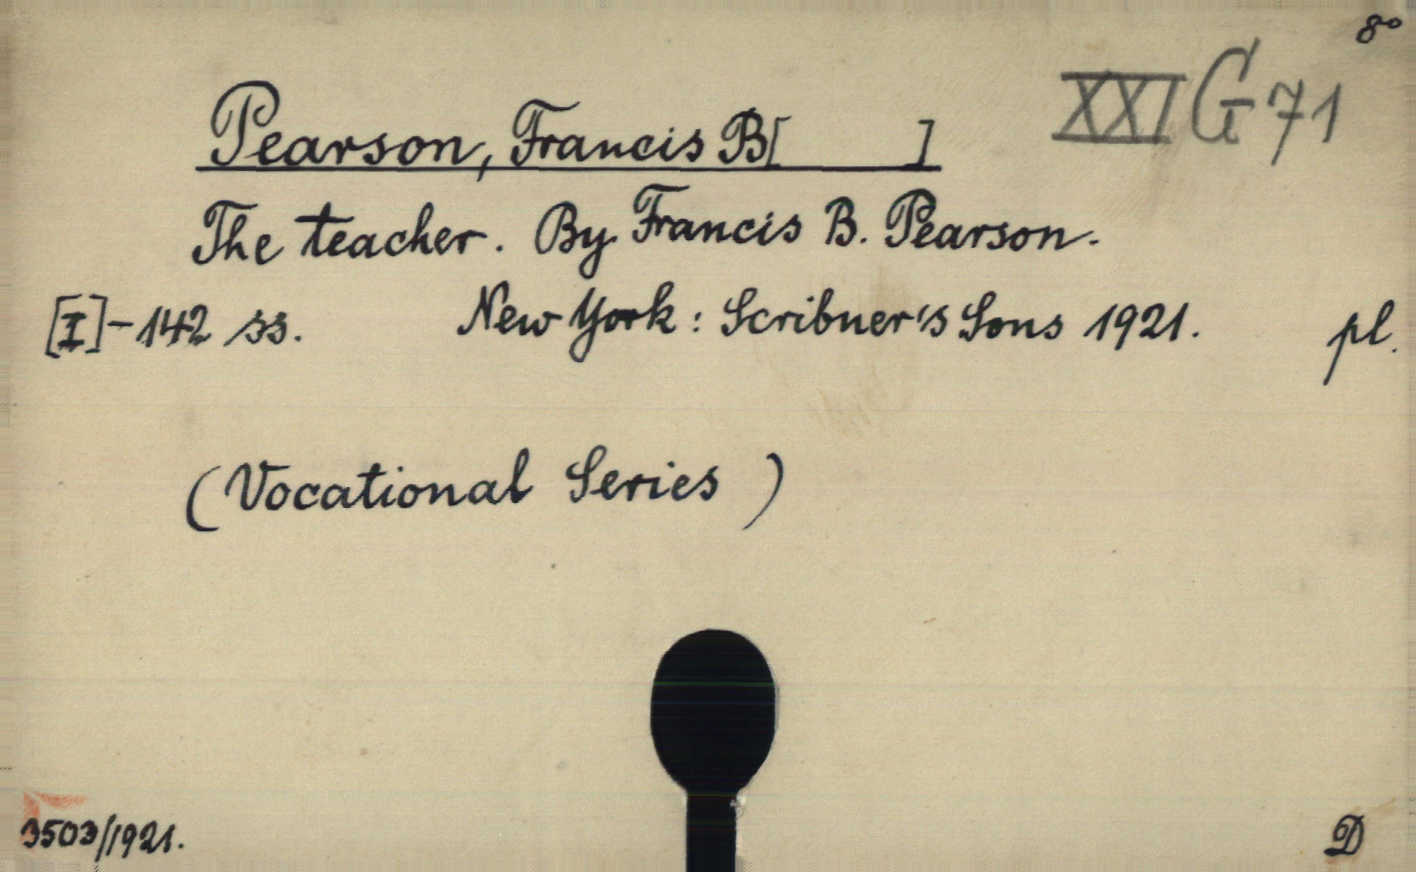 8°
XXI G 71
Pearson, Francis B[ ]
The teacher. By Francis B. Pearson.
[I]-142 ss. New York: Scribner's Sons 1921. pl.
(Vocational Series )
3503/1921. D